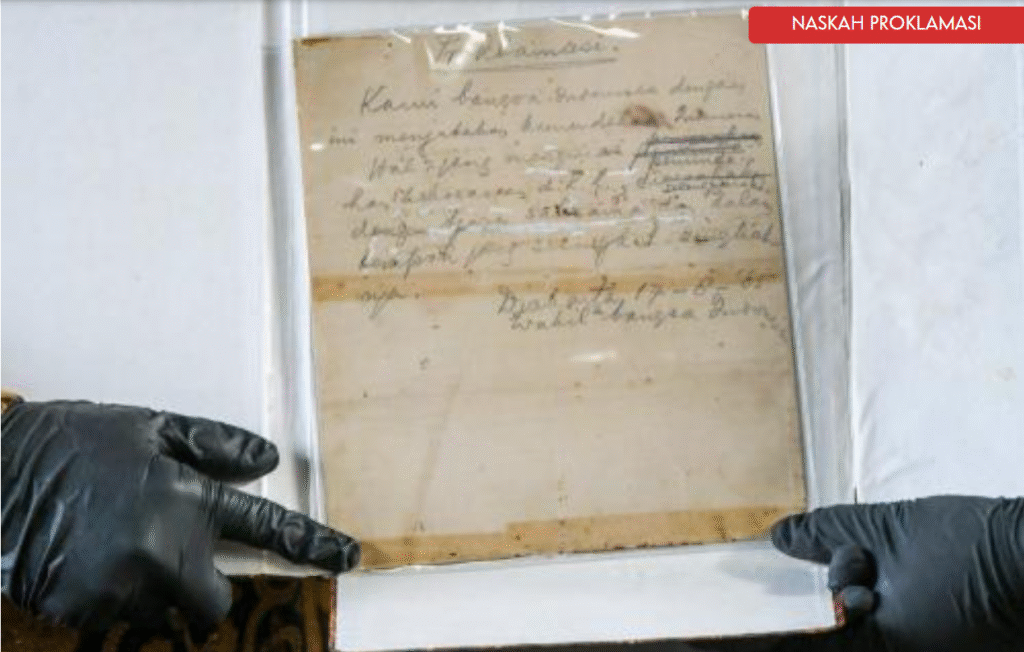 NASKAH PROKLAMASI
Proklamasi.
Kami bangsa Indonesia dengan
ini menjatakan kemerdekaan Indonesia
Hal2 jang mengenai
d.l.l.
dengan tjara
tempoh jang se singkat2 singkat
nja.
Djakarta, 17 - 8 - '05
Wakil2 bangsa Indon